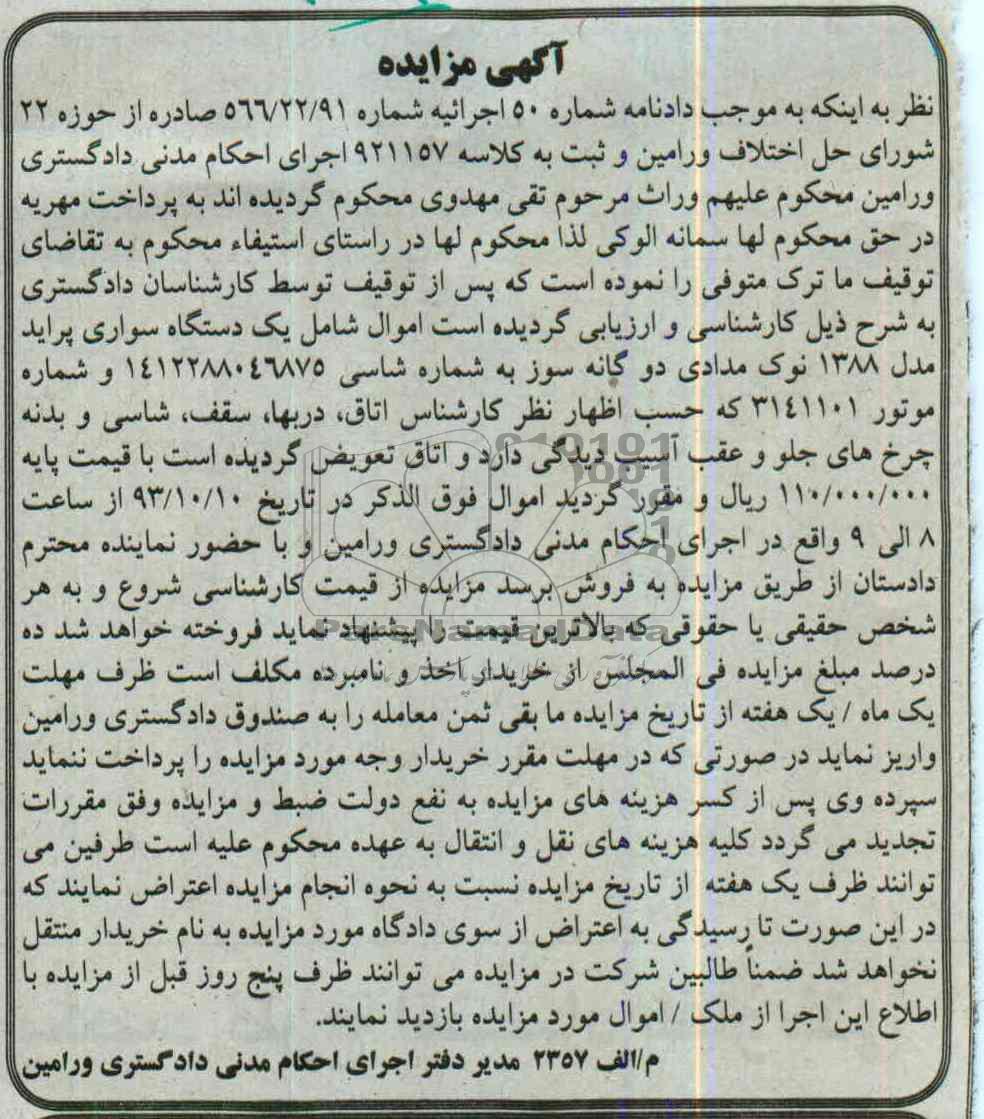 آگهی مزایده
نظر به اینکه به موجب دادنامه شماره ۵۰ اجرائیه شماره ۵۶۶/۲۲/۹۱ صادره از حوزه ۲۲
شورای حل اختلاف ورامین و ثبت به کلاسه ۹۲۱۱۵۷ اجرای احکام مدنی دادگستری
ورامین محکوم علیهم وراث مرحوم تقی مهدوی محکوم گردیده اند به پرداخت مهریه
در حق محکوم لها سمانه الوکی لذا محکوم لها در راستای استیفاء محکوم به تقاضای
توقیف ما ترک متوفی را نموده است که پس از توقیف توسط کارشناسان دادگستری
به شرح ذیل کارشناسی و ارزیابی گردیده است اموال شامل یک دستگاه سواری پراید
مدل ۱۳۸۸ نوک مدادی دو گانه سوز به شماره شاسی ۱۴۱۲۲۸۸۰۴۶۸۷۵ و شماره
موتور ۳۱۴۱۱۰۱ که حسب اظهار نظر کارشناس اتاق، دربها، سقف، شاسی و بدنه
چرخ های جلو و عقب آسیب دیدگی دارد و اتاق تعویض گردیده است با قیمت پایه
۱۱۰/۰۰۰/۰۰۰ ریال و مقرر گردید اموال فوق الذکر در تاریخ ۹۳/۱۰/۱۰ از ساعت
۸ الی ۹ واقع در اجرای احکام مدنی دادگستری ورامین و با حضور نماینده محترم
دادستان از طریق مزایده به فروش برسد مزایده از قیمت کارشناسی شروع و به هر
شخص حقیقی یا حقوقی که بالاترین قیمت را پیشنهاد نماید فروخته خواهد شد ده
درصد مبلغ مزایده فی المجلس از خریدار اخذ و نامبرده مکلف است ظرف مهلت
یک ماه / یک هفته از تاریخ مزایده ما بقی ثمن معامله را به صندوق دادگستری ورامین
واریز نماید در صورتی که در مهلت مقرر خریدار وجه مورد مزایده را پرداخت ننماید
سپرده وی پس از کسر هزینه های مزایده به نفع دولت ضبط و مزایده وفق مقررات
تجدید می گردد کلیه هزینه های نقل و انتقال به عهده محکوم علیه است طرفین می
توانند ظرف یک هفته از تاریخ مزایده نسبت به نحوه انجام مزایده اعتراض نمایند که
در این صورت تا رسیدگی به اعتراض از سوی دادگاه مورد مزایده به نام خریدار منتقل
نخواهد شد ضمناً طالبین شرکت در مزایده می توانند ظرف پنج روز قبل از مزایده با
اطلاع این اجرا از ملک / اموال مورد مزایده بازدید نمایند.
م/الف ۲۳۵۷ مدیر دفتر اجرای احکام مدنی دادگستری ورامین
ParsNamadData